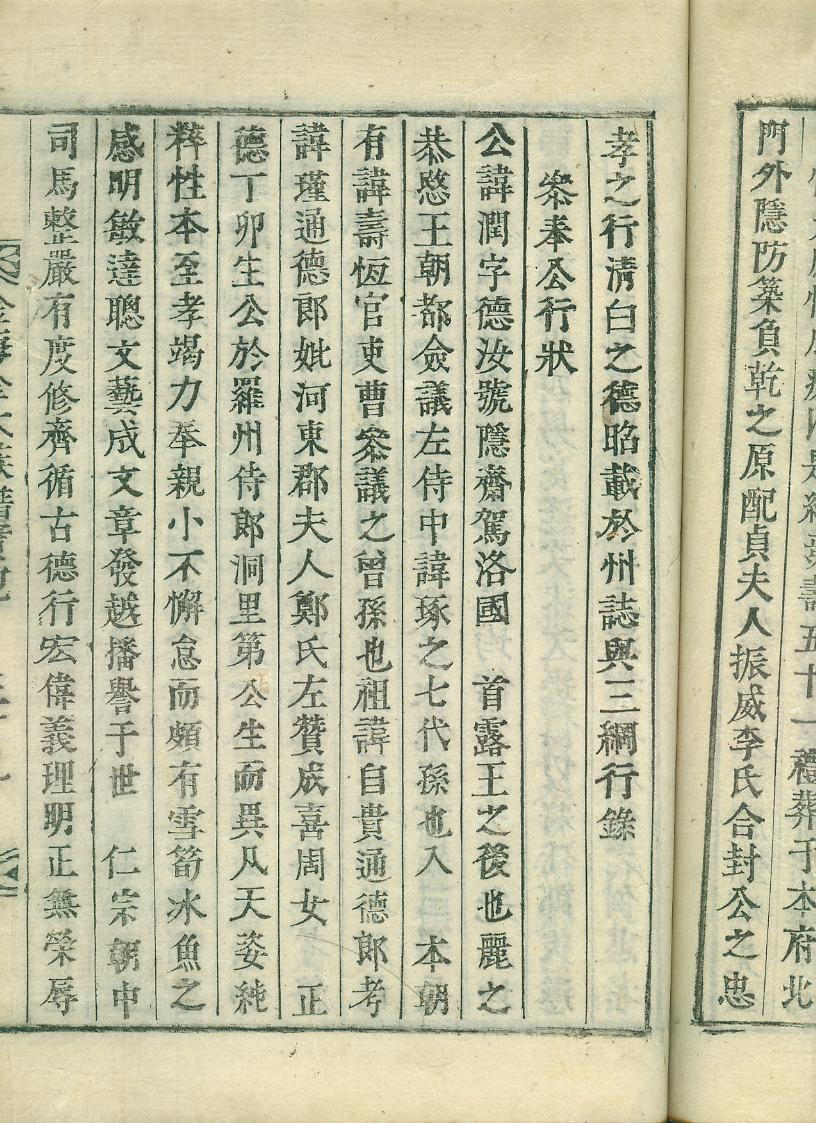 禮葬于本府北
門外隱防築負乾之原配貞夫人振威李氏合封公之忠
孝之行淸白之德昭載於州誌與三綱行錄
叅奉公行狀
公諱潤字德汝號隱齋駕洛國 首露王之後也麗之
恭愍王朝都僉議左侍中諱琢之七代孫也入 本朝
有諱壽恆官吏曹叅議之曾孫也祖諱自貴通德郎考
諱瑾通德郎妣河東郡夫人鄭氏左贊成喜周女 正
德丁卯生公於羅州侍郎洞里第公生而異凡天姿純
粹性本至孝竭力奉親小不懈怠而頗有雪筍氷魚之
感明敏達聰文藝成文章發越播譽于世 仁宗朝中
司馬整嚴有度修齊循古德行宏偉義理明正無榮辱